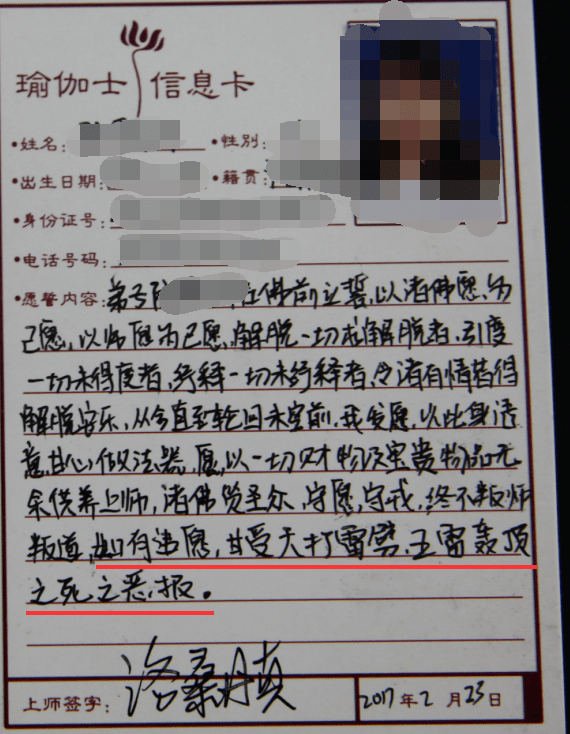 瑜伽士 信息卡
·姓名: ·性别:
·出生日期: ·籍贯:
·身份证号:
·电话号码:
·愿誓内容: 弟子 在佛前立誓,以诸佛愿为
己愿,以师愿为己愿,解脱一切未解脱者,引度
一切未得度者,绔释一切未绔释者,令诸有情皆得
解脱安乐,从今直至轮回未空前,我发愿,以此身语
意,甘心做法器,愿,以一切财物及宝贵物品无
余供养上师,诸佛贤圣众,守愿,守戒,终不叛师
叛道,如有违愿,甘受天打雷劈,五雷轰顶
之死之恶报。
上师签字: 洛桑丹真 2017年2月23日